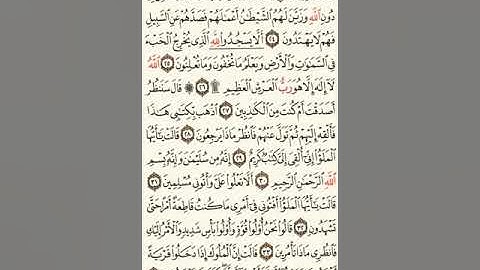 دُونِ ٱللَّهِ وَزَيَّنَ لَهُمُ ٱلشَّيْطَٰنُ أَعْمَٰلَهُمْ فَصَدَّهُمْ عَنِ ٱلسَّبِيلِ
فَهُمْ لَا يَهْتَدُونَ ٢٤ أَلَّا يَسْجُدُوا۟ لِلَّهِ ٱلَّذِى يُخْرِجُ ٱلْخَبْءَ
فِى ٱلسَّمَٰوَٰتِ وَٱلْأَرْضِ وَيَعْلَمُ مَا تُخْفُونَ وَمَا تُعْلِنُونَ ٢٥ ٱللَّهُ
لَآ إِلَٰهَ إِلَّا هُوَ رَبُّ ٱلْعَرْشِ ٱلْعَظِيمِ ۩ ٢٦ ۞ قَالَ سَنَنظُرُ
أَصَدَقْتَ أَمْ كُنتَ مِنَ ٱلْكَٰذِبِينَ ٢٧ ٱذْهَب بِّكِتَٰبِى هَٰذَا
فَأَلْقِهْ إِلَيْهِمْ ثُمَّ تَوَلَّ عَنْهُمْ فَٱنظُرْ مَاذَا يَرْجِعُونَ ٢٨ قَالَتْ يَٰٓأَيُّهَا
ٱلْمَلَؤُا۟ إِنِّىٓ أُلْقِىَ إِلَىَّ كِتَٰبٌ كَرِيمٌ ٢٩ إِنَّهُۥ مِن سُلَيْمَٰنَ وَإِنَّهُۥ بِسْمِ
ٱللَّهِ ٱلرَّحْمَٰنِ ٱلرَّحِيمِ ٣٠ أَلَّا تَعْلُوا۟ عَلَىَّ وَأْتُونِى مُسْلِمِينَ ٣١
قَالَتْ يَٰٓأَيُّهَا ٱلْمَلَؤُا۟ أَفْتُونِى فِىٓ أَمْرِى مَا كُنتُ قَاطِعَةً أَمْرًا حَتَّىٰ
تَشْهَدُونِ ٣٢ قَالُوا۟ نَحْنُ أُو۟لُوا۟ قُوَّةٍ وَأُو۟لُوا۟ بَأْسٍ شَدِيدٍ وَٱلْأَمْرُ إِلَيْكِ
فَٱنظُرِى مَاذَا تَأْمُرِينَ ٣٣ قَالَتْ إِنَّ ٱلْمُلُوكَ إِذَا دَخَلُوا۟ قَرْيَةً